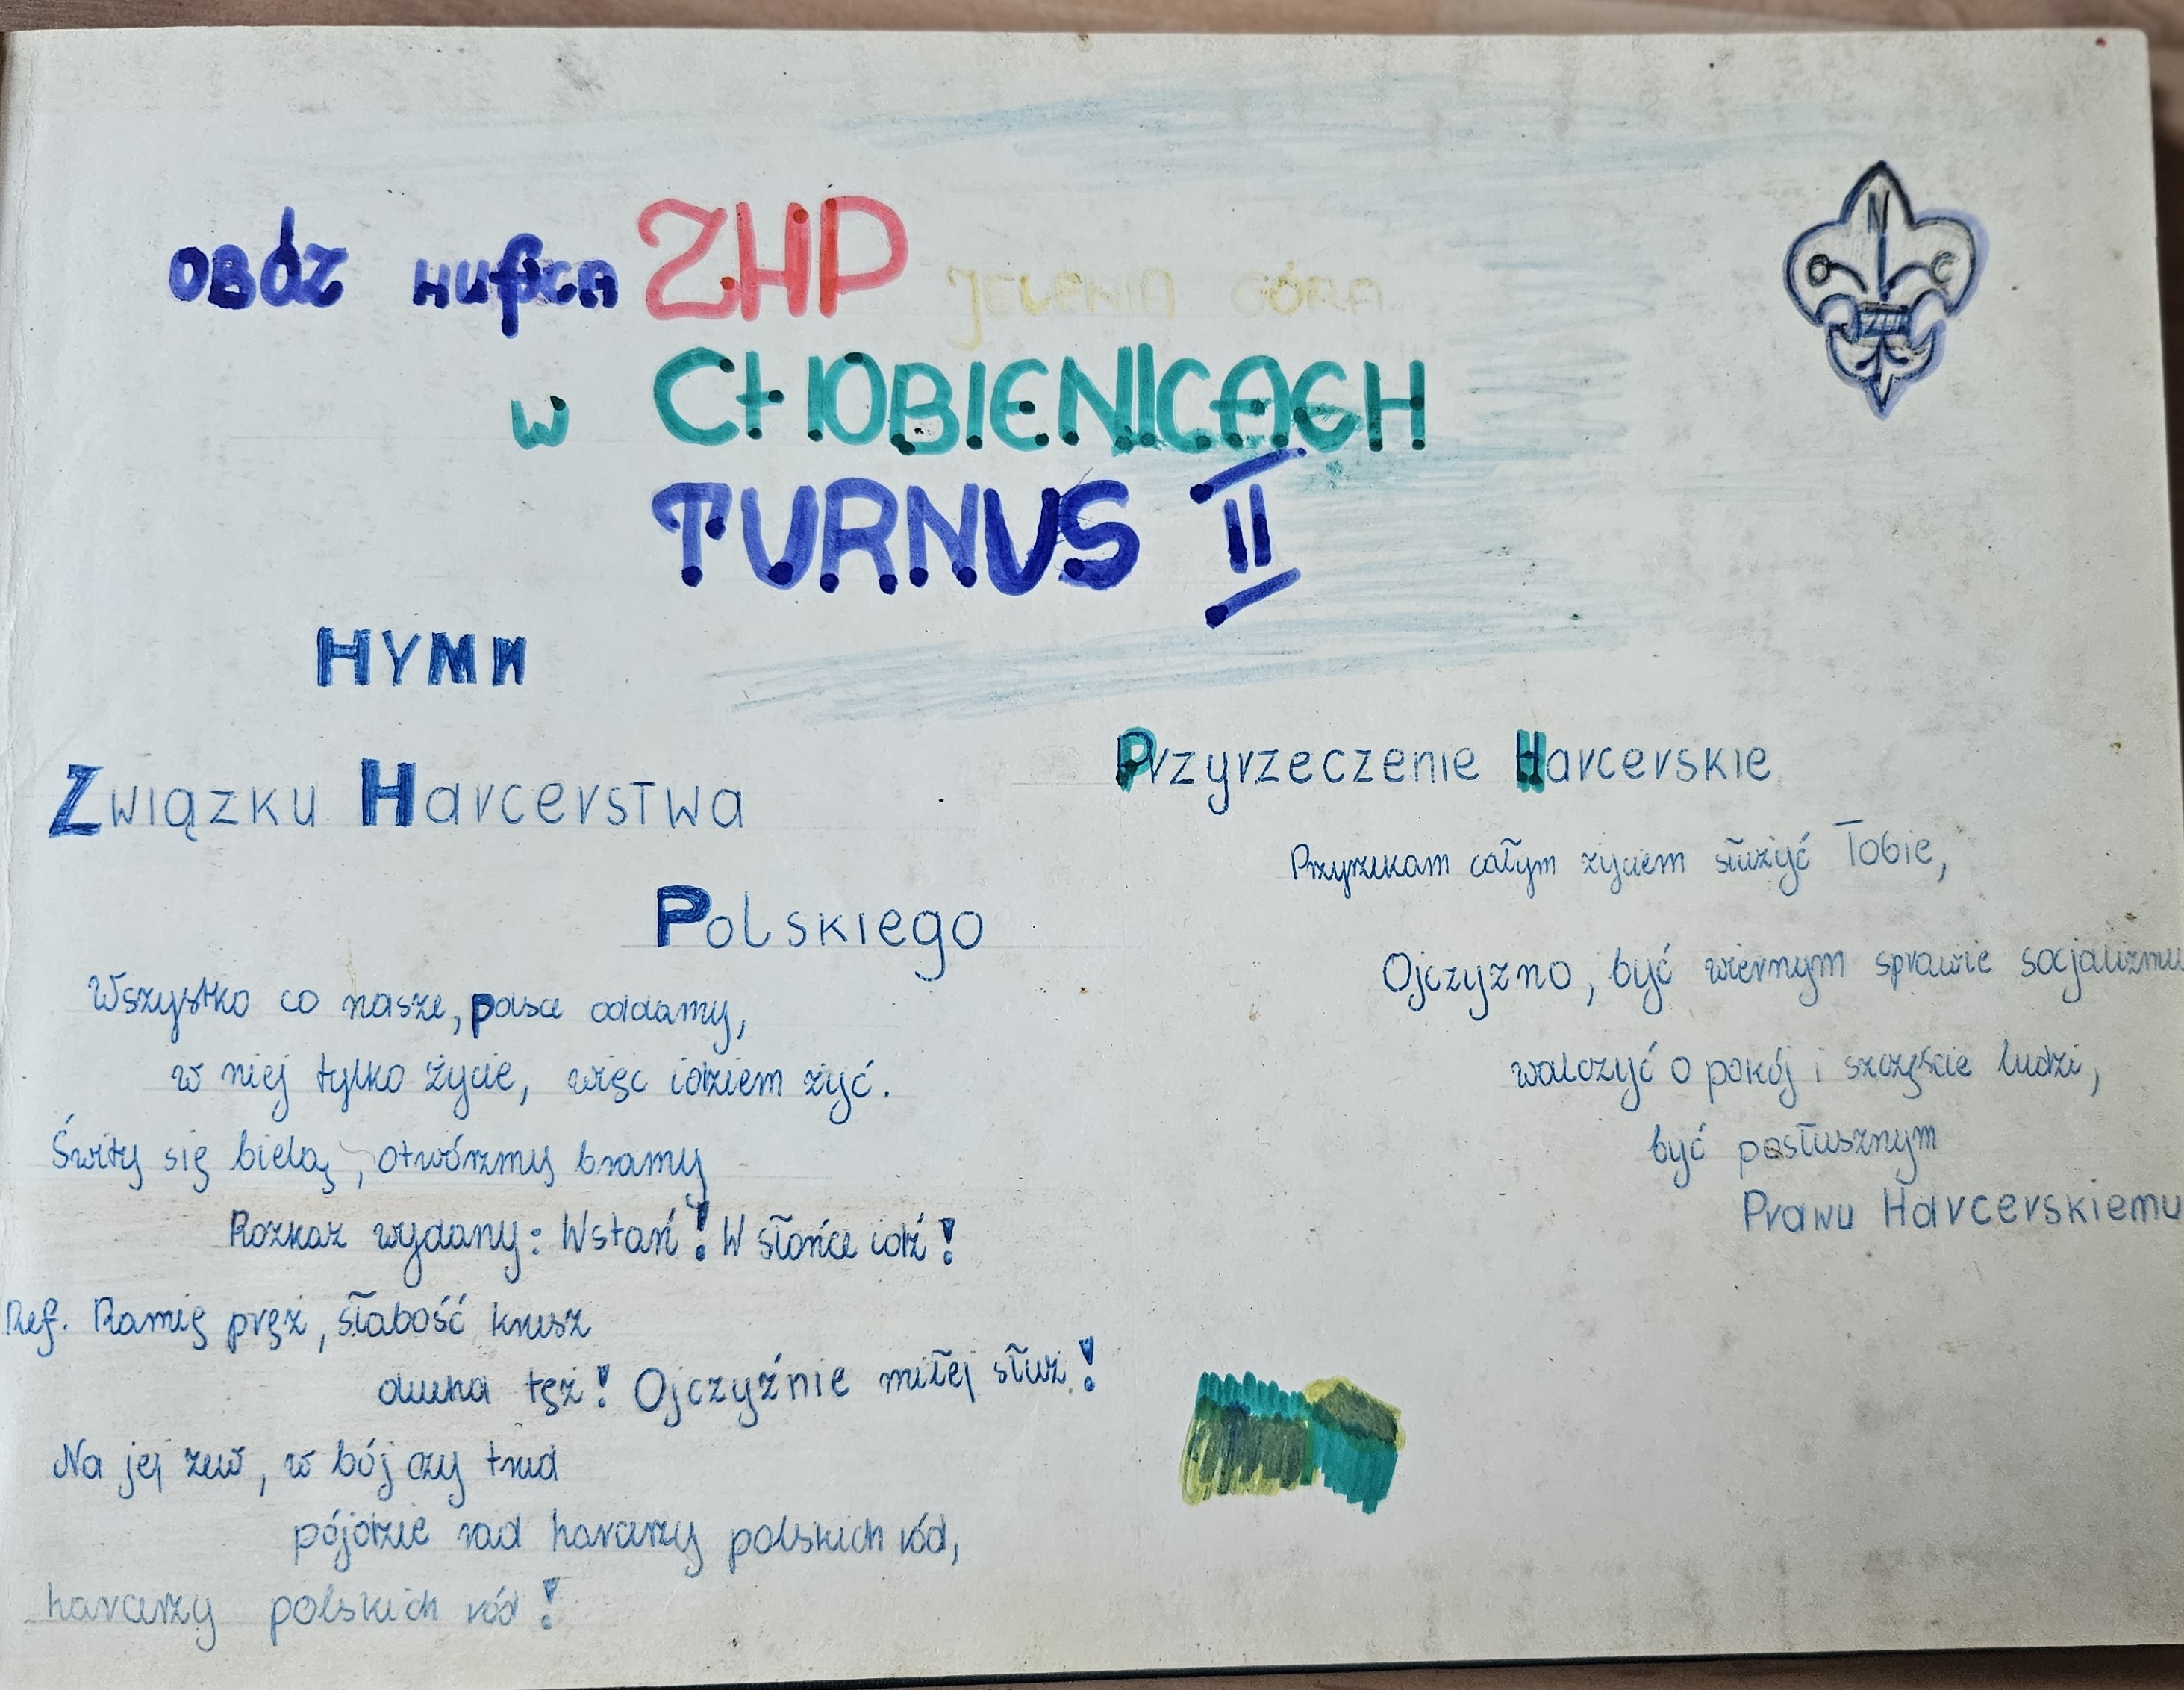 OBÓZ HUFCA ZHP JELENIA GÓRA
w CHOBIENICACH
TURNUS II
N
O C
ZHP
HYMN
Związku Harcerstwa
Polskiego
Wszystko co nasze, polsce oddamy,
w niej tylko życie, więc idziem żyć.
Świty się bielą, otwórzmy bramy
Rozkaz wydany: Wstań! W słońce idź!
Ref. Ramię pręż, słabość krusz
ducha tęż! Ojczyźnie miłej służ!
Na jej zew, w bój czy trud
pójdzie rad harcerzy polskich ród,
harcerzy polskich ród!
Przyrzeczenie Harcerskie
Przyrzekam całym życiem służyć Tobie,
Ojczyzno, być wiernym sprawie socjalizmu
walczyć o pokój i szczęście ludzi,
być posłusznym
Prawu Harcerskiemu